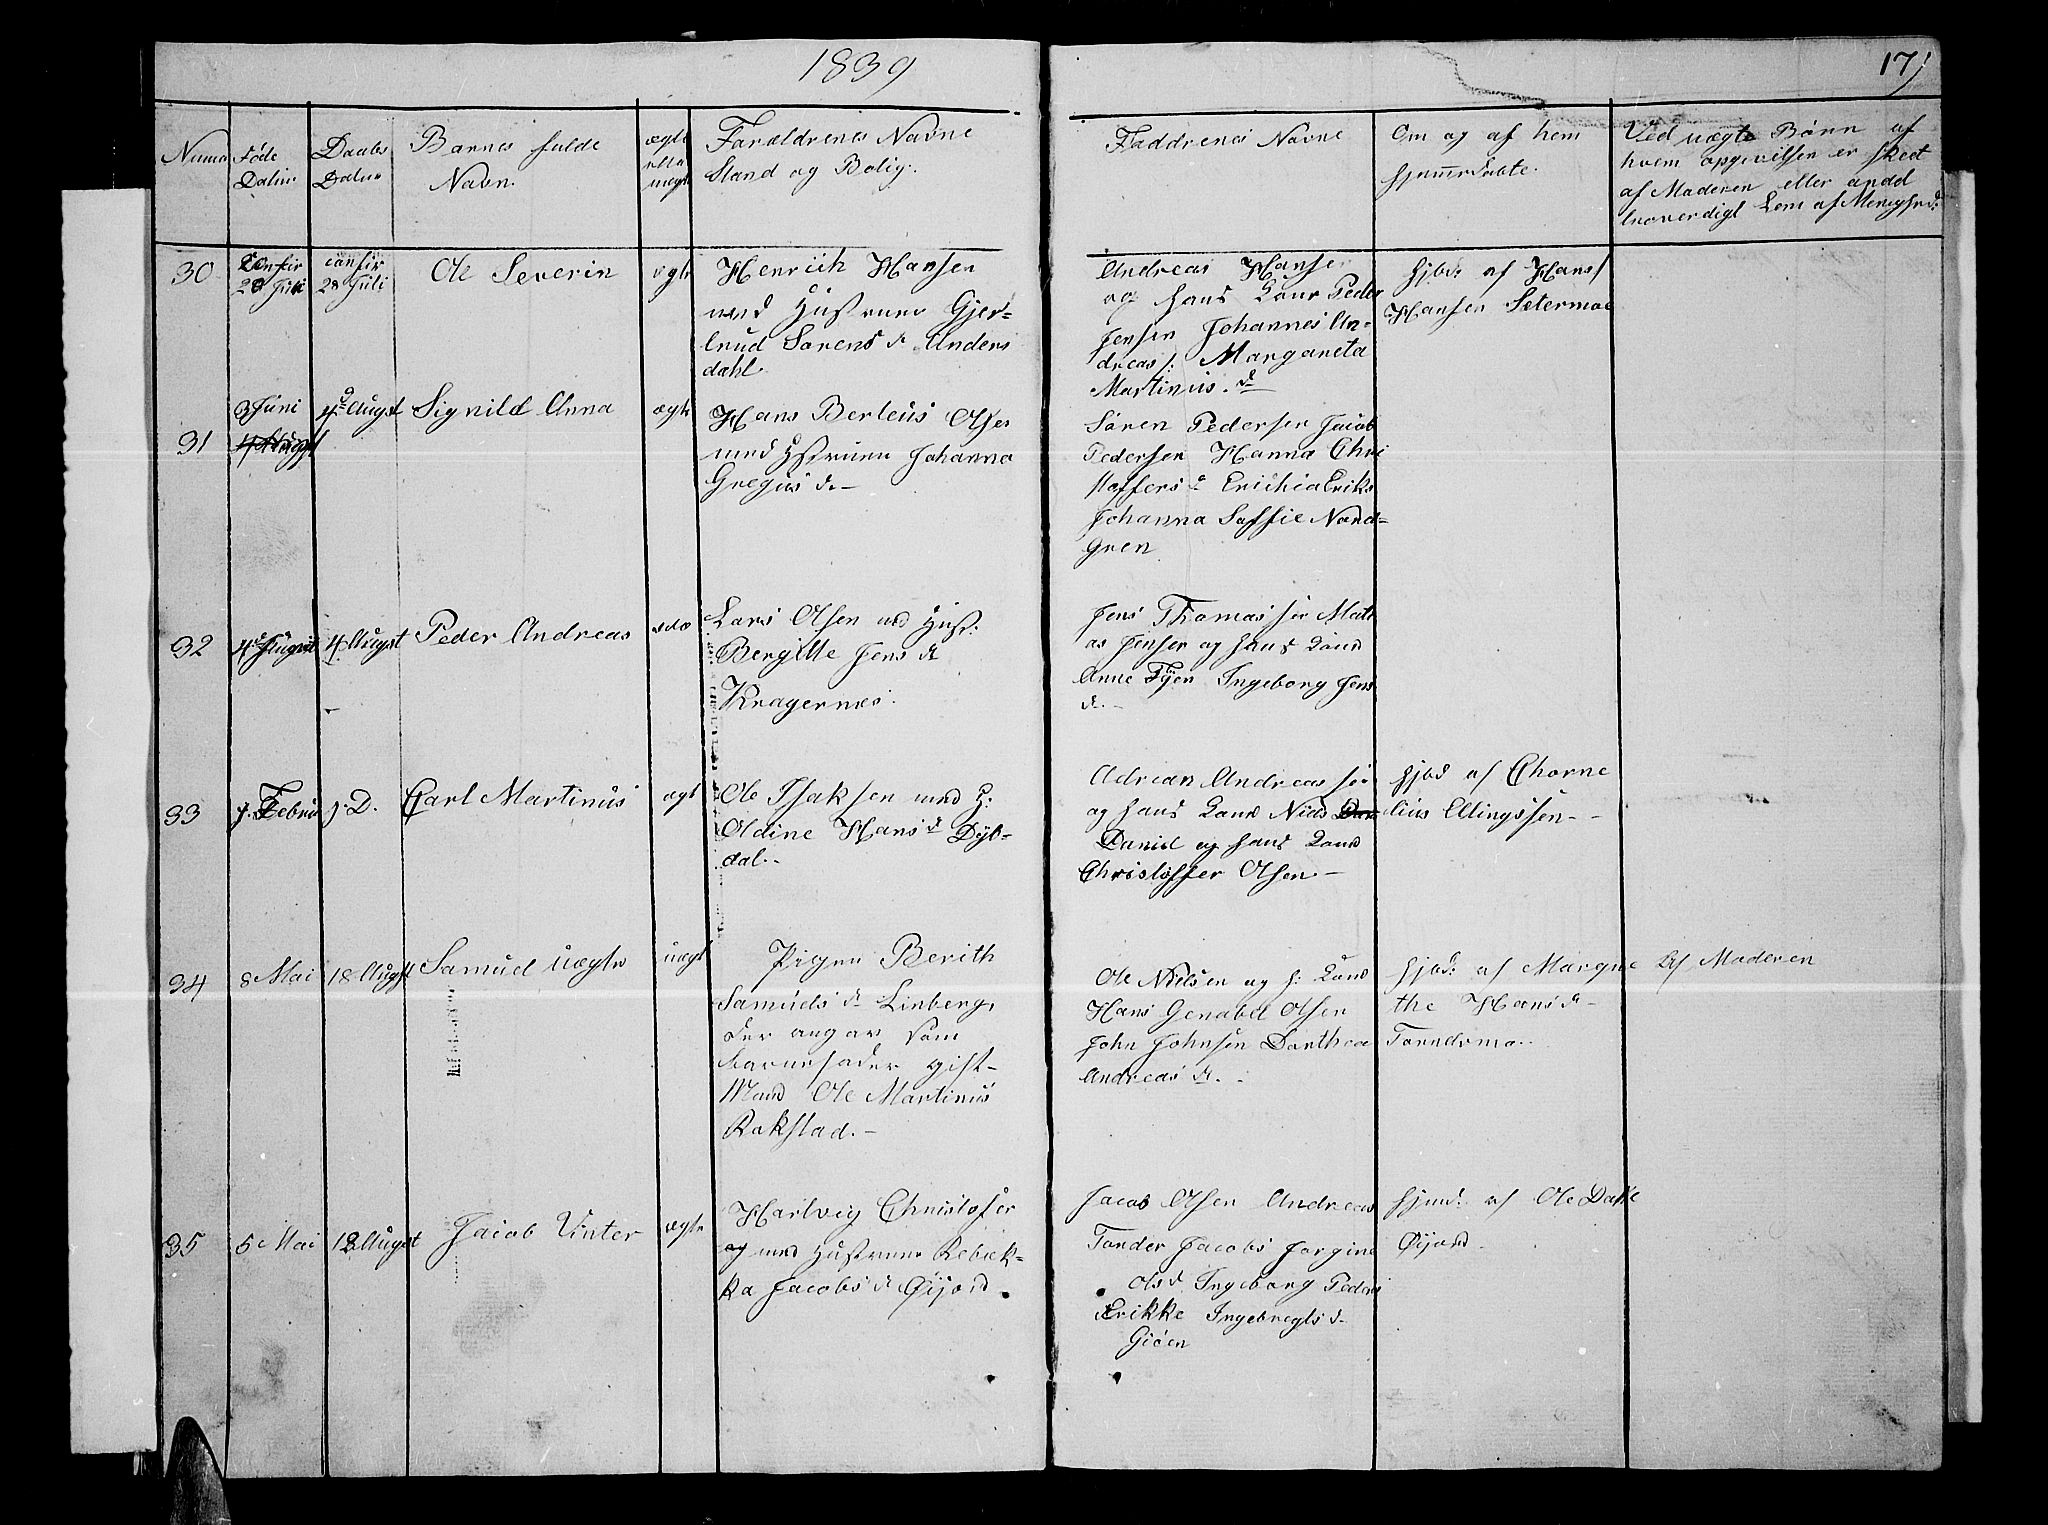 1839
171
Numo
Føde
Datur
Daabs
Datur
Barnes fulde
Navn.
ægte
ella
uægt
Forældrenes Navne
Stand og Bolig.
Faddrenes Navne
Om og af hem
hjemmedøbte.
Ved uægte Børn af
hvem opgivelsen er skeet
af Moderen eller andd
troverdigt Lem af Menighed:
30
28 Juli
28 Juli
Ole Severin
ægte
Henrich Hansen
med Hustrue Gjer-
trud Sørens d Anders
dahl.
Andreas Hansen
og hans Kone Peder
Jensen Johannes An-
dreas/: Margareta
Martinus. d
hjbd: af Hans
Hansen Setermoe
31
3 Juni
4 Augst
Signild Anna
ægte
Hans Berteus Olsen
med Hstruen Johanna
Gregus d. -
Søren Pedersen Jacob
Pedersen Hanna Chri
stoffers d Erichia Eriks
Johanna Soffie Nord-
gren
32
4 Augst
Peder Andreas
Lars Olsen med Hust:
Bergitte Jens d
Kragernes.
Jens Thomassen Mat
as Jensen og hans Kone
Anne Ingeborg Jens
d. -
33
7. Februa
D.
Carl Martinus
ægt
Ole Isaksen med H:
Oldine Hans d Dyb-
dal. -
Adrean Andreassen
og hans Kone Niels
Daniel og hans Kone
Christoffer Olsen. -
hjbd af Chorne
lius Ellingssen - -
34
8 Mai
18 Augst
Samuel uægte
uægt
Pigen Berith
Samuels d Linberg,
der angav som
barnefader gift-
Mand Ole Martinus
Rokstad. -
Ole Nielsen og h: Kone
Hans Genabel Olsen
John Johnsen Dorthea
Andreas d. -
hjbd: af Margre
the Hans d -
Tonnermo..
Af Moderen
35
5 Mai
18 August
Jacob Vinter
ægte
Hartvig Christofer
og med Hustruen Rebek-
ka Jacobs d Øijord.
Jacob Olsen Andreas
Tonder Jacobs Jorgine
Ols d Ingeborg Peders
d Erikke Ingebregts d
Gioen
hjemd: af Ole
Øijord.